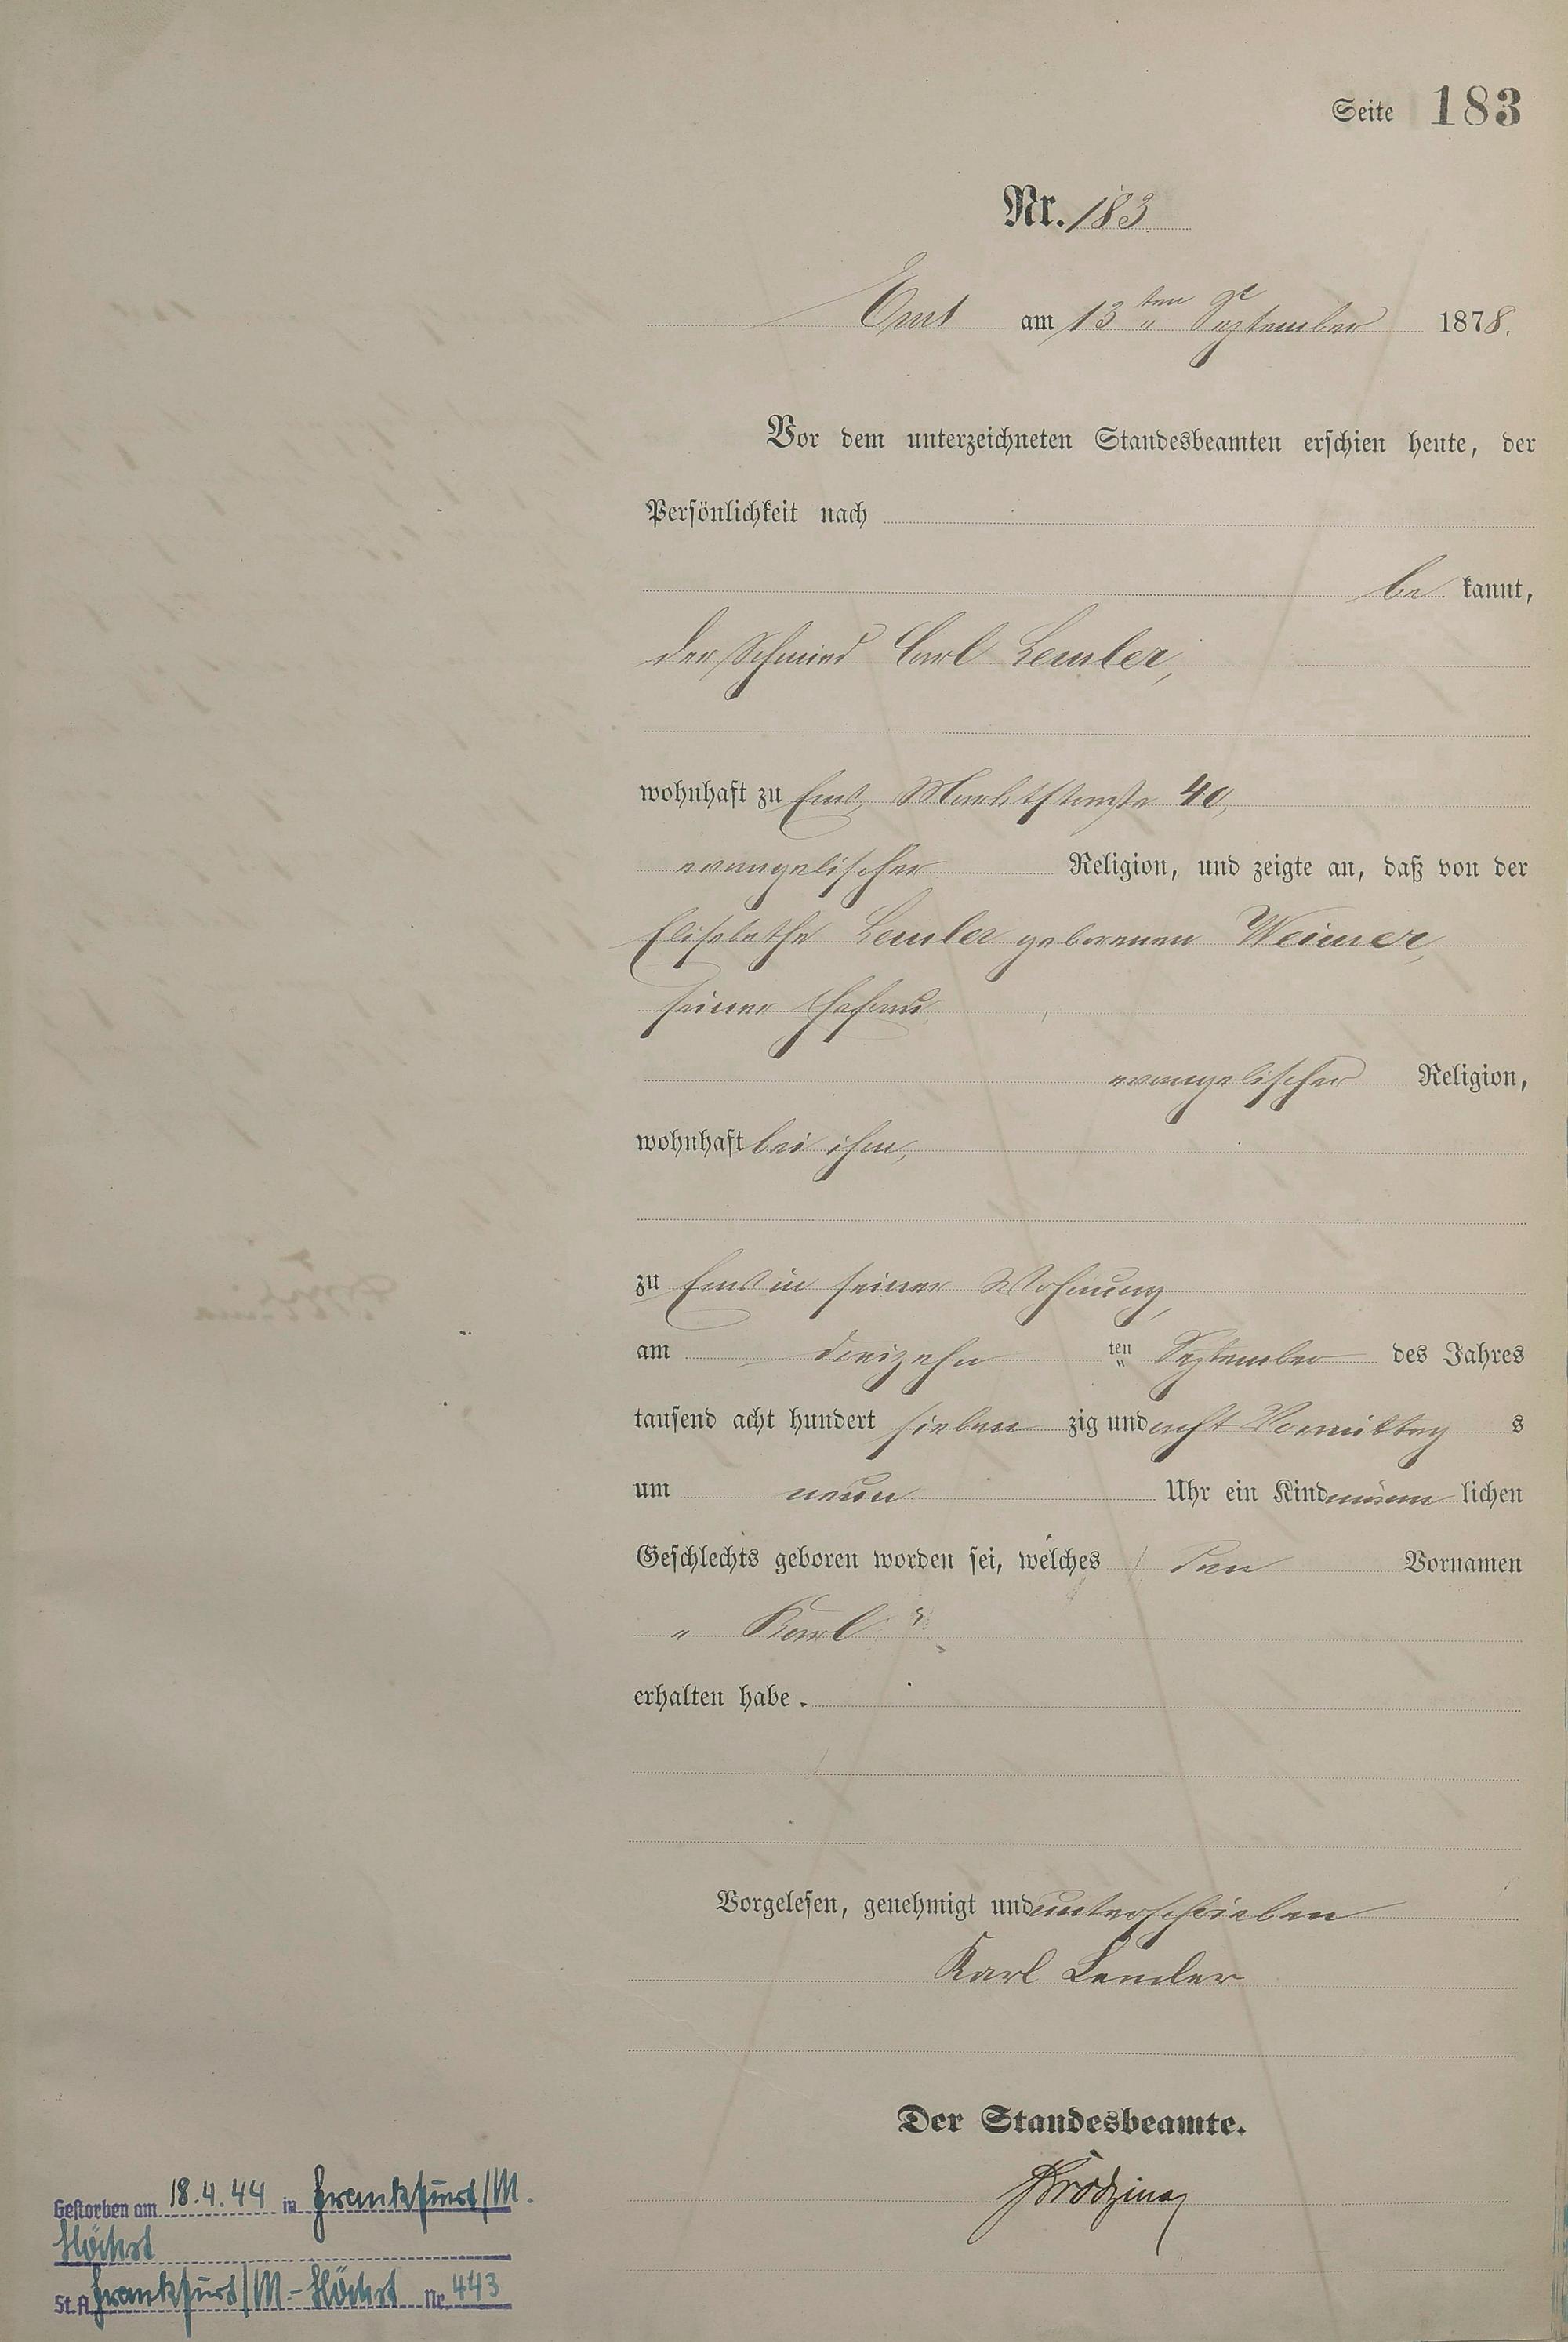 Seite 183
Nr. 183.
Ems am 13ten September 1878.
Vor dem unterzeichneten Standesbeamten erschien heute, der
Persönlichkeit nach
be kannt,
der Schmied Carl Lemler,
wohnhaft zu Ems, Marktstraße 40,
evangelischer Religion, und zeigte an, daß von der
Elisabethe Lemler geborenen Weimer,
seiner Ehefrau
evangelischer Religion,
wohnhaft bei ihm,
zu Ems in seiner Wohnung,
am dreizehn ten September des Jahres
tausend acht hundert sieben zig und acht Vormittag s
um neun Uhr ein Kind männ lichen
Geschlechts geboren worden sei, welches den Vornamen
„ Karl “
erhalten habe.
Vorgelesen, genehmigt und unterschrieben
Karl Lemler
Der Standesbeamte.
Gestorben am 18.4.44 in Frankfurt/M.
Höchst
St.A. Frankfurt/M.-Höchst Nr. 443